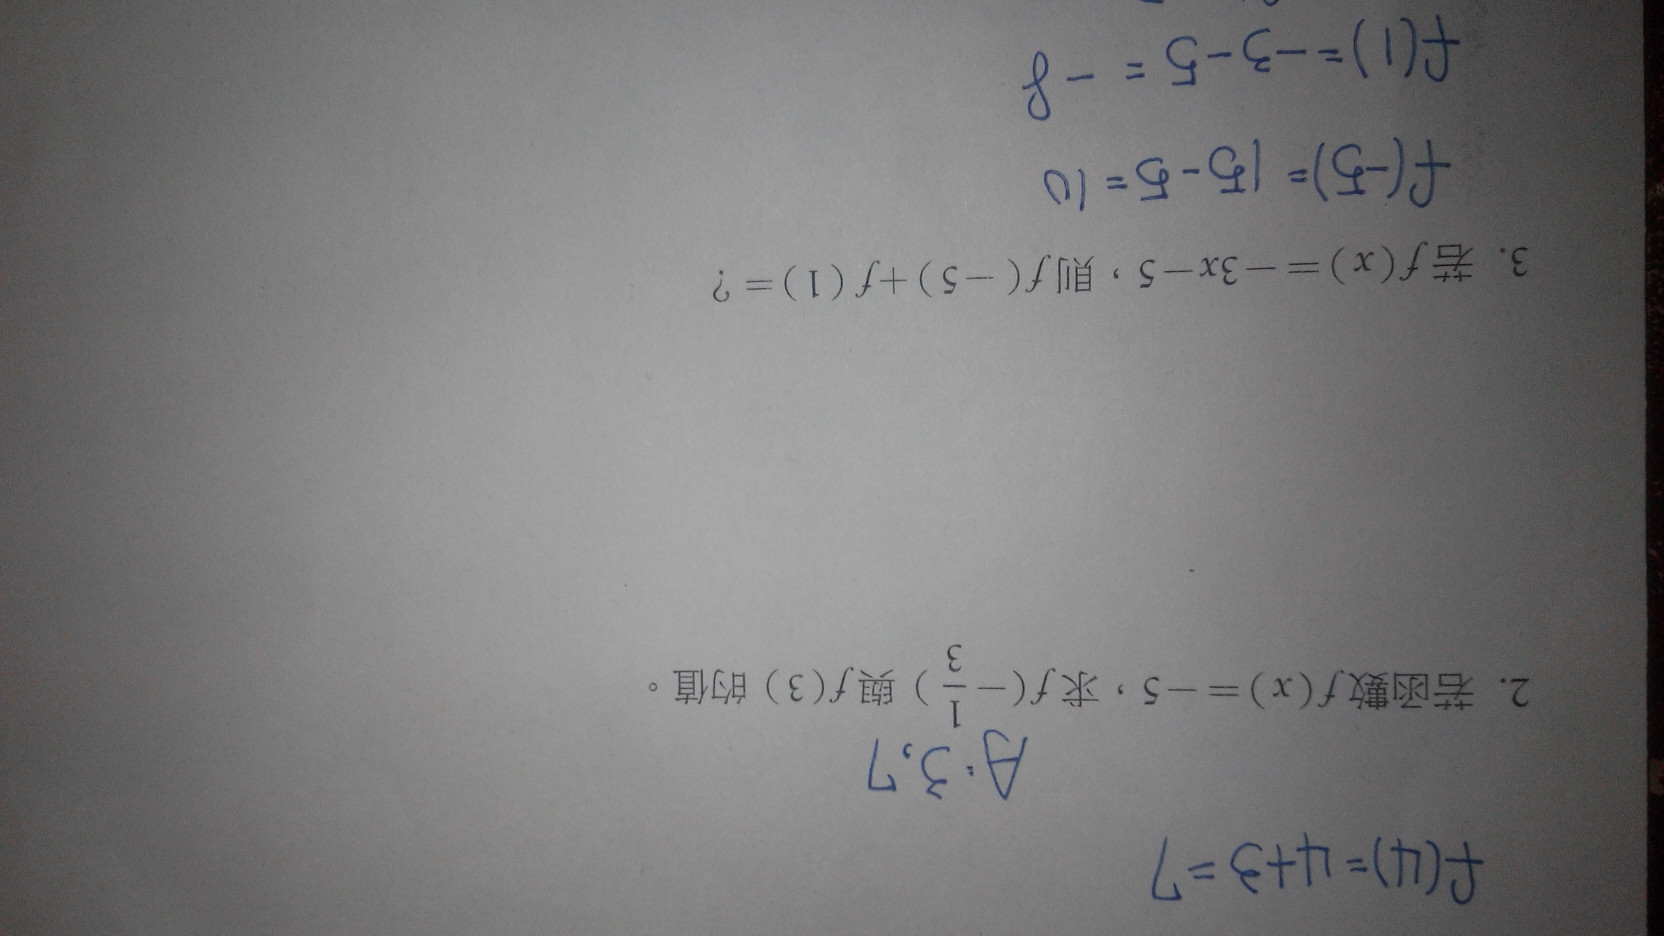 f(4)=4+3=7
A:3,7
2. 若函數f(x)=-5，求f(-1/3)與f(3)的值。
3. 若f(x)=-3x-5，則f(-5)+f(1)=?
f(-5)=15-5=10
f(1)=-3-5=-8